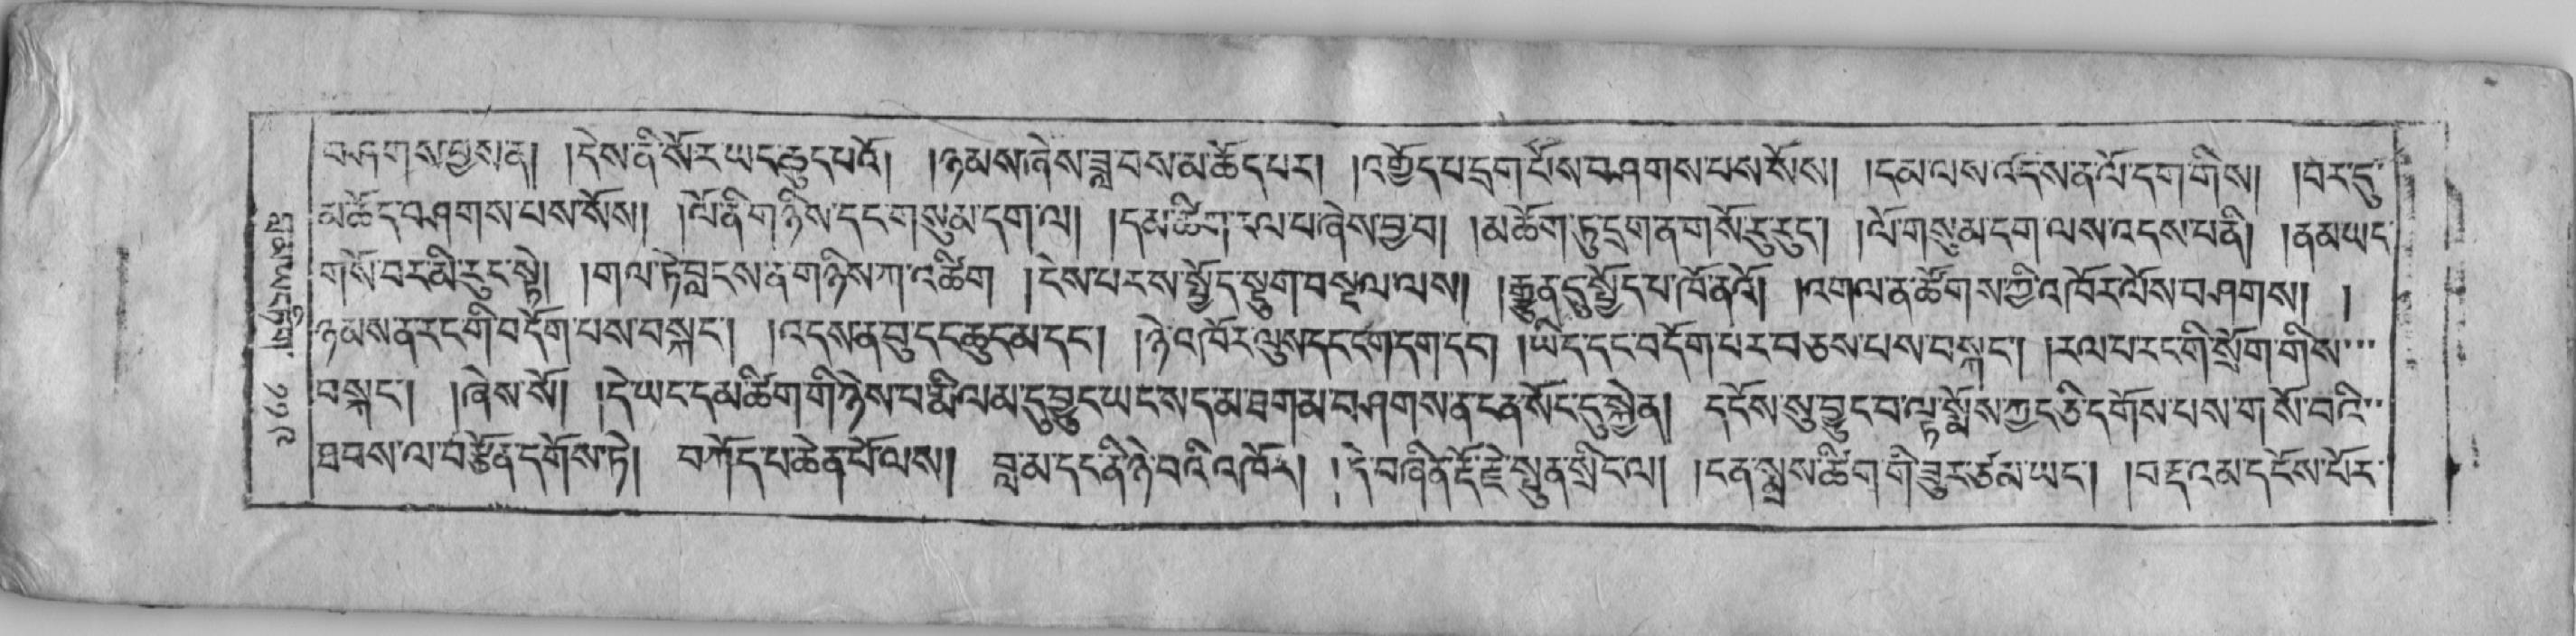 བཤགས་བྱས་ན། །དེས་ནི་སོར་ཡང་ཆུད་པའོ། །ཉམས་ཞེས་ཟླ་བས་མ་ཆོད་པར། །འགྱོད་པ་དྲག་པོས་བཤགས་པས་སོས། །དམ་ལས་འདས་ན་ལོ་དག་གིས། །བར་དུ་
མ་ཆོད་བཤགས་པས་སོས། །ལོ་ནི་གཉིས་དང་གསུམ་དག་ལ། །དམ་ཚིག་རལ་བ་ཞེས་བྱ་བ། །མཆོག་ཏུ་དྲག་ན་གསོ་རུ་རུང་། །ལོ་གསུམ་དག་ལས་འདས་པ་ནི། །ནམ་ཡང་
གསོ་བར་མི་རུང་སྟེ། །གལ་ཏེ་བླངས་ན་གཉིས་ཀ་འཚིག །ངེས་པར་ས་སྤྱོད་སྡུག་བསྔལ་ལས། །རྒྱུན་དུ་སྤྱོད་པ་ཁོ་ནའོ། །འགལ་ན་ཚོགས་ཀྱི་འཁོར་ལོས་བཤགས། །
ཉམས་ན་རང་གི་བདོག་པས་བསྐང་། །འདས་ན་བུ་དང་ཆུང་མ་དང་། །ཉེ་འཁོར་ལུས་དང་ངག་དག་དང་། །ཡིད་དང་བདོག་པར་བཅས་པས་བསྐང་། །རལ་བ་རང་གི་སྲོག་གིས་
བསྐང་། །ཞེས་སོ། །དེ་ཡང་དམ་ཚིག་གི་ཉེས་པ་རྨི་ལམ་དུ་བྱུང་ཡང་ས་ད་མ་ཐག་མ་བཤགས་ན་ངན་སོང་དུ་སྐྱེ་ན། དངོས་སུ་བྱུང་བ་ལྟ་སྨོས་ཀྱང་ཅི་དགོས་པས་གསོ་བའི་
ཐབས་ལ་བརྩོན་དགོས་ཏེ། བཀོད་པ་ཆེན་པོ་ལས། བླ་མ་དང་ནི་ཉེ་བའི་འཁོར། །དེ་བཞིན་རྡོ་རྗེ་སྤུན་སྲིང་ལ། །ངན་སྨྲས་ཚིག་གི་ཟུར་ཙམ་ཡང་། །བརྡ་འམ་དངོས་པོར་